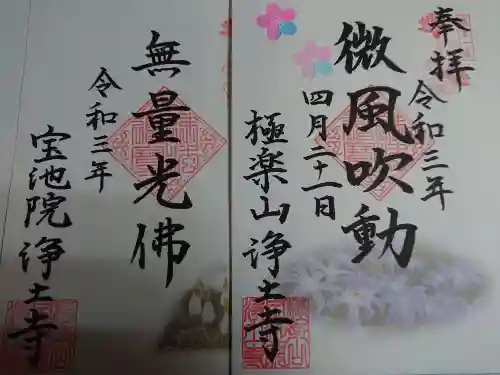 奉拝
令和三年
微風吹動
四月二十一日
極楽山浄土寺
無量光佛
令和三年
宝池院浄土寺